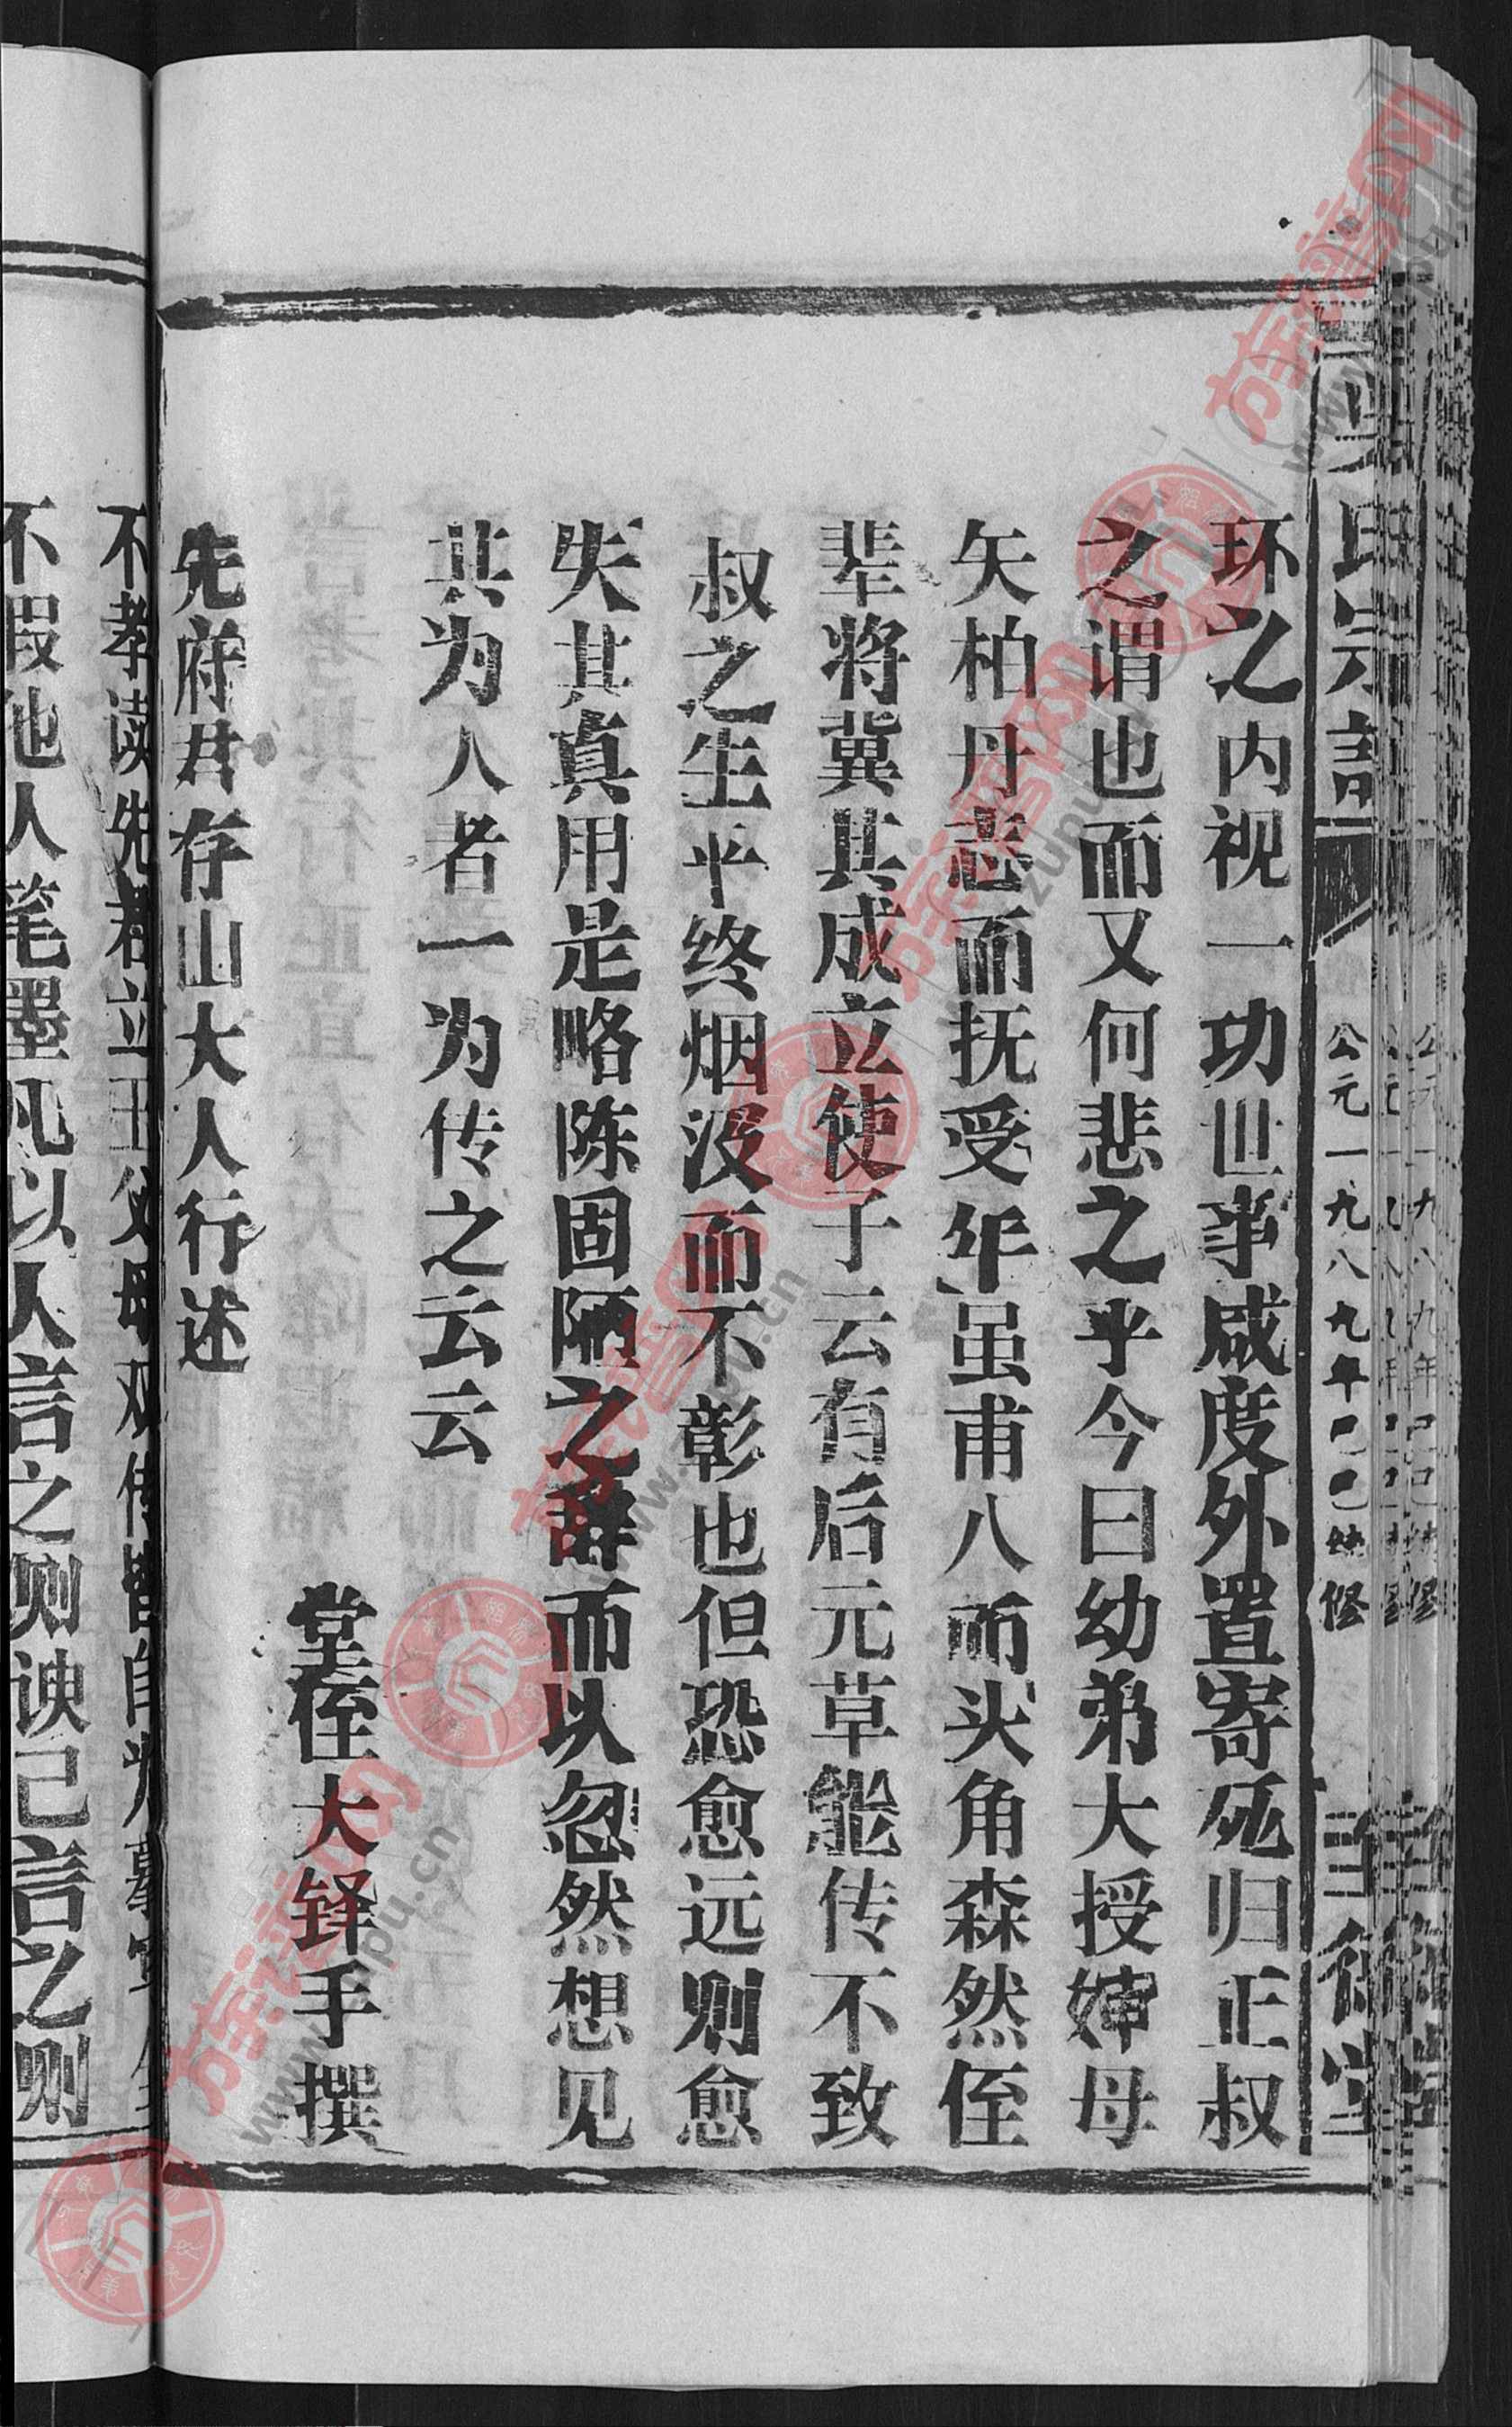 环之内视一功世事咸度外置寄死归正叔
之谓也而又何悲之乎今曰幼弟大授婶母
矢柏丹志而抚受年虽甫八而头角森然侄
辈将冀其成立使子云有后元草能传不致
叔之生平终烟没而不彰也但恐愈远则愈
失其真用是略陈固陋之辞而以忽然想见
其为人者一为传之云云
堂侄大铎手撰
先府君存山大人行述
不孝读先君立王父母双传皆自
不假他人笔墨凡以人言之则谀己言之则
氏宗譜
公元一九八九年己巳续修
古宗谱网
www.zupu.cn